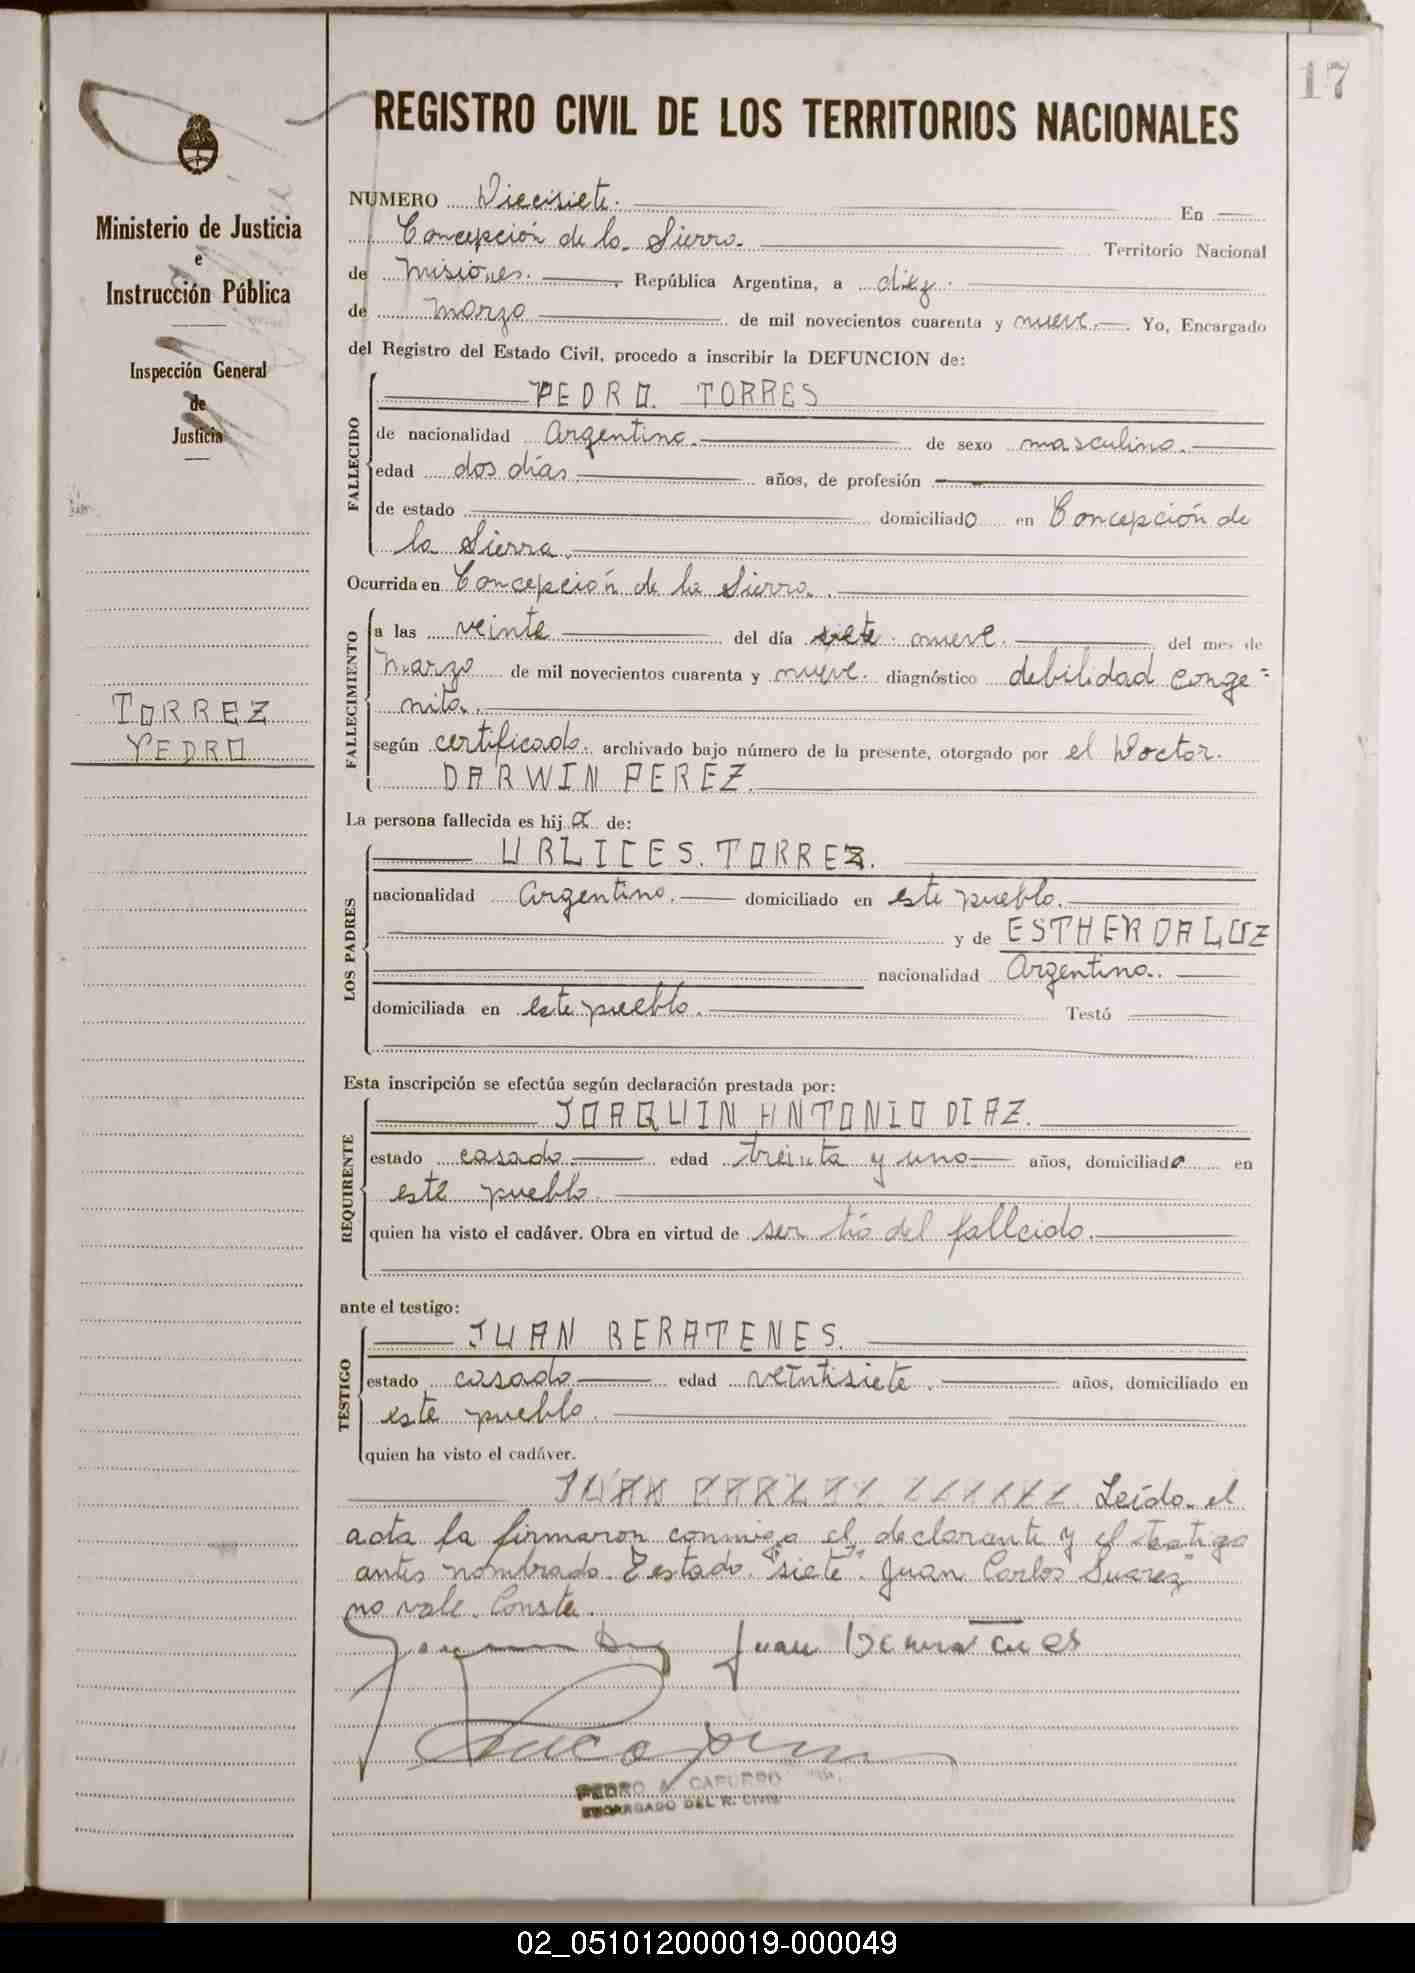 17
REGISTRO CIVIL DE LOS TERRITORIOS NACIONALES
Ministerio de Justicia
e
Instrucción Pública
Inspección General
de
Justicia
TORREZ
PEDRO
NUMERO Diecisiete. En
Concepción de la Sierra. Territorio Nacional
de Misiones. República Argentina, a diez.
de Marzo de mil novecientos cuarenta y nueve. Yo, Encargado
del Registro del Estado Civil, procedo a inscribir la DEFUNCION de:
FALLECIDO
PEDRO. TORRES
de nacionalidad Argentina. de sexo masculino.
edad dos días. años, de profesión
de estado domiciliado en Concepción de
la Sierra.
Ocurrida en Concepción de la Sierra.
FALLECIMIENTO
a las veinte del día siete nueve. del mes de
Marzo de mil novecientos cuarenta y nueve. diagnóstico debilidad conge=
nita.
según certificado. archivado bajo número de la presente, otorgado por el Doctor.
DARWIN PEREZ.
La persona fallecida es hijo de:
LOS PADRES
URLICES. TORREZ.
nacionalidad Argentino. domiciliado en este pueblo.
y de ESTHER DA LUZ
nacionalidad Argentina.
domiciliada en este pueblo. Testó
Esta inscripción se efectúa según declaración prestada por:
REQUIRENTE
JOAQUIN ANTONIO DIAZ.
estado casado. edad treinta y uno años, domiciliado en
este pueblo.
quien ha visto el cadáver. Obra en virtud de ser tío del fallcido.
ante el testigo:
TESTIGO
JUAN BERATENES.
estado casado edad veintisiete. años, domiciliado en
este pueblo.
quien ha visto el cadáver.
JUAN Leído. el
acta la firmaron conmigo el declarante y el testigo
antes nombrado. Testado. "siete". Juan Carlos Suarez"
no vale. Conste.
Juan
PEDRO A. CAPURRO
ENCARGADO DEL R. CIVIL
02_051012000019-000049